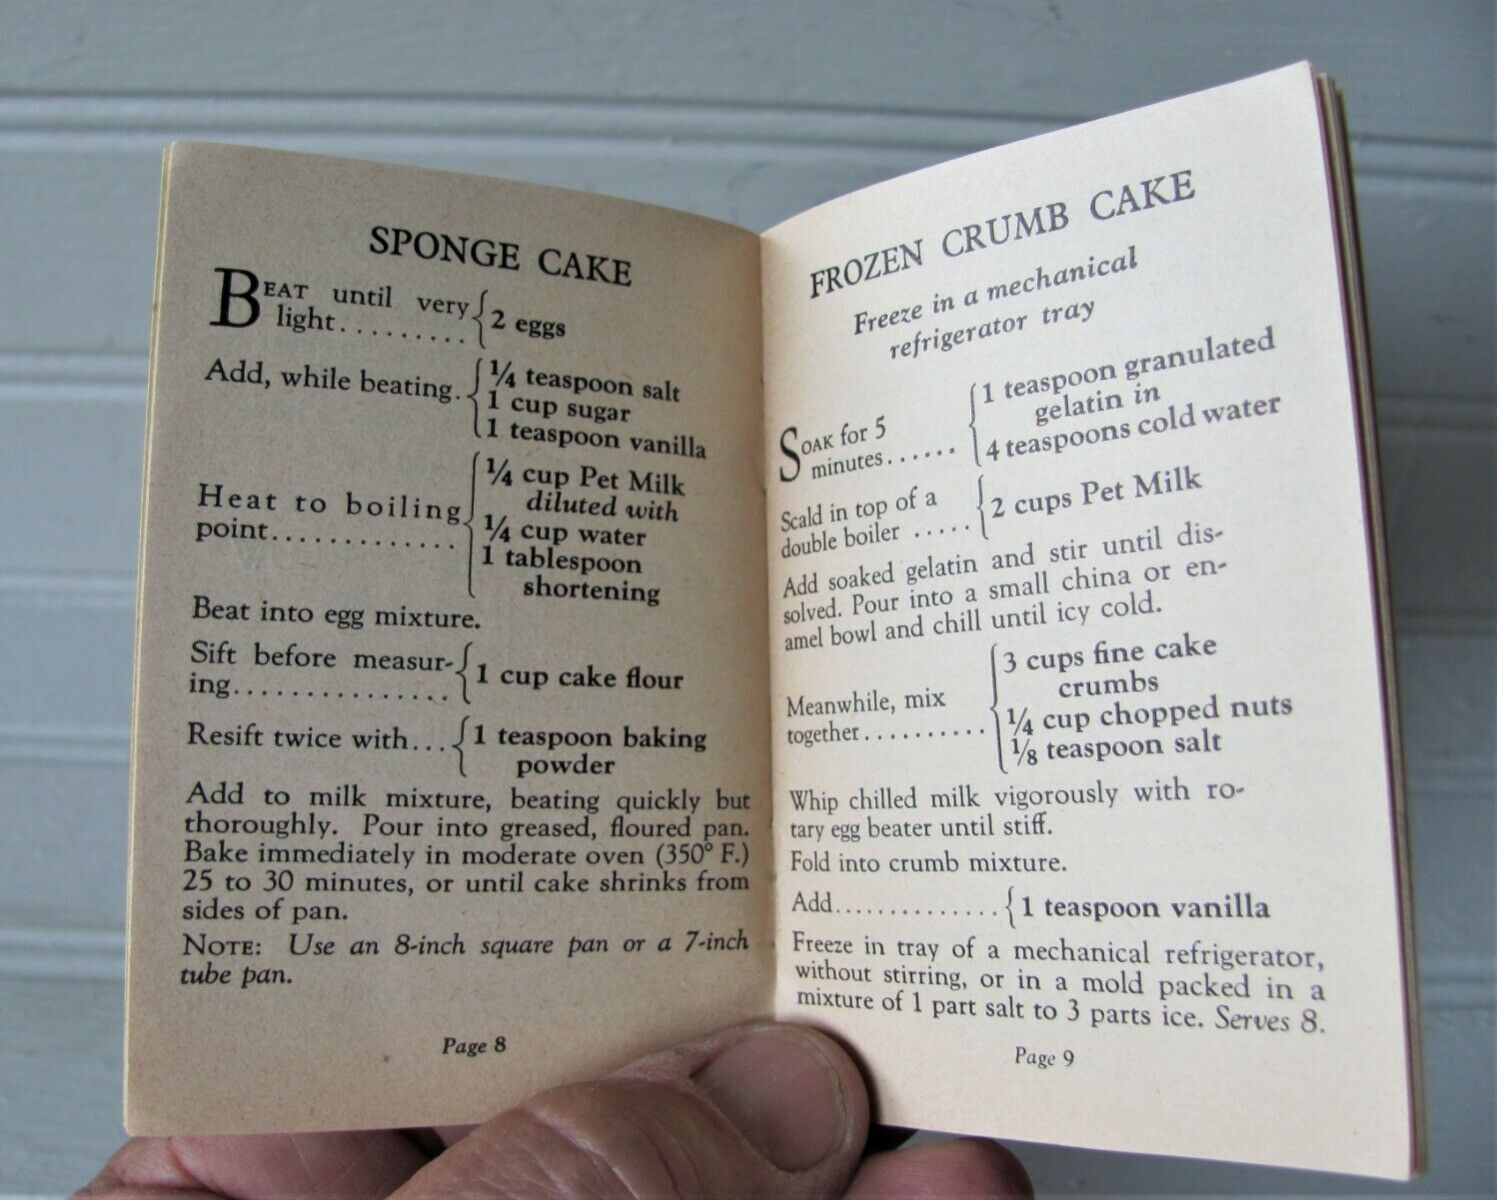 SPONGE CAKE
BEAT until very
light.........
2 eggs
Add, while beating.
¼ teaspoon salt
1 cup sugar
1 teaspoon vanilla
Heat to boiling
point.............
¼ cup Pet Milk
diluted with
¼ cup water
1 tablespoon
shortening
Beat into egg mixture.
Sift before measur-
ing................
1 cup cake flour
Resift twice with...
1 teaspoon baking
powder
Add to milk mixture, beating quickly but
thoroughly. Pour into greased, floured pan.
Bake immediately in moderate oven (350° F.)
25 to 30 minutes, or until cake shrinks from
sides of pan.
NOTE: Use an 8-inch square pan or a 7-inch
tube pan.
Page 8
FROZEN CRUMB CAKE
Freeze in a mechanical
refrigerator tray
SOAK for 5
minutes......
1 teaspoon granulated
gelatin in
4 teaspoons cold water
Scald in top of a
double boiler .....
2 cups Pet Milk
Add soaked gelatin and stir until dis-
solved. Pour into a small china or en-
amel bowl and chill until icy cold.
Meanwhile, mix
together..........
3 cups fine cake
crumbs
¼ cup chopped nuts
⅛ teaspoon salt
Whip chilled milk vigorously with ro-
tary egg beater until stiff.
Fold into crumb mixture.
Add..............
1 teaspoon vanilla
Freeze in tray of a mechanical refrigerator,
without stirring, or in a mold packed in a
mixture of 1 part salt to 3 parts ice. Serves 8.
Page 9